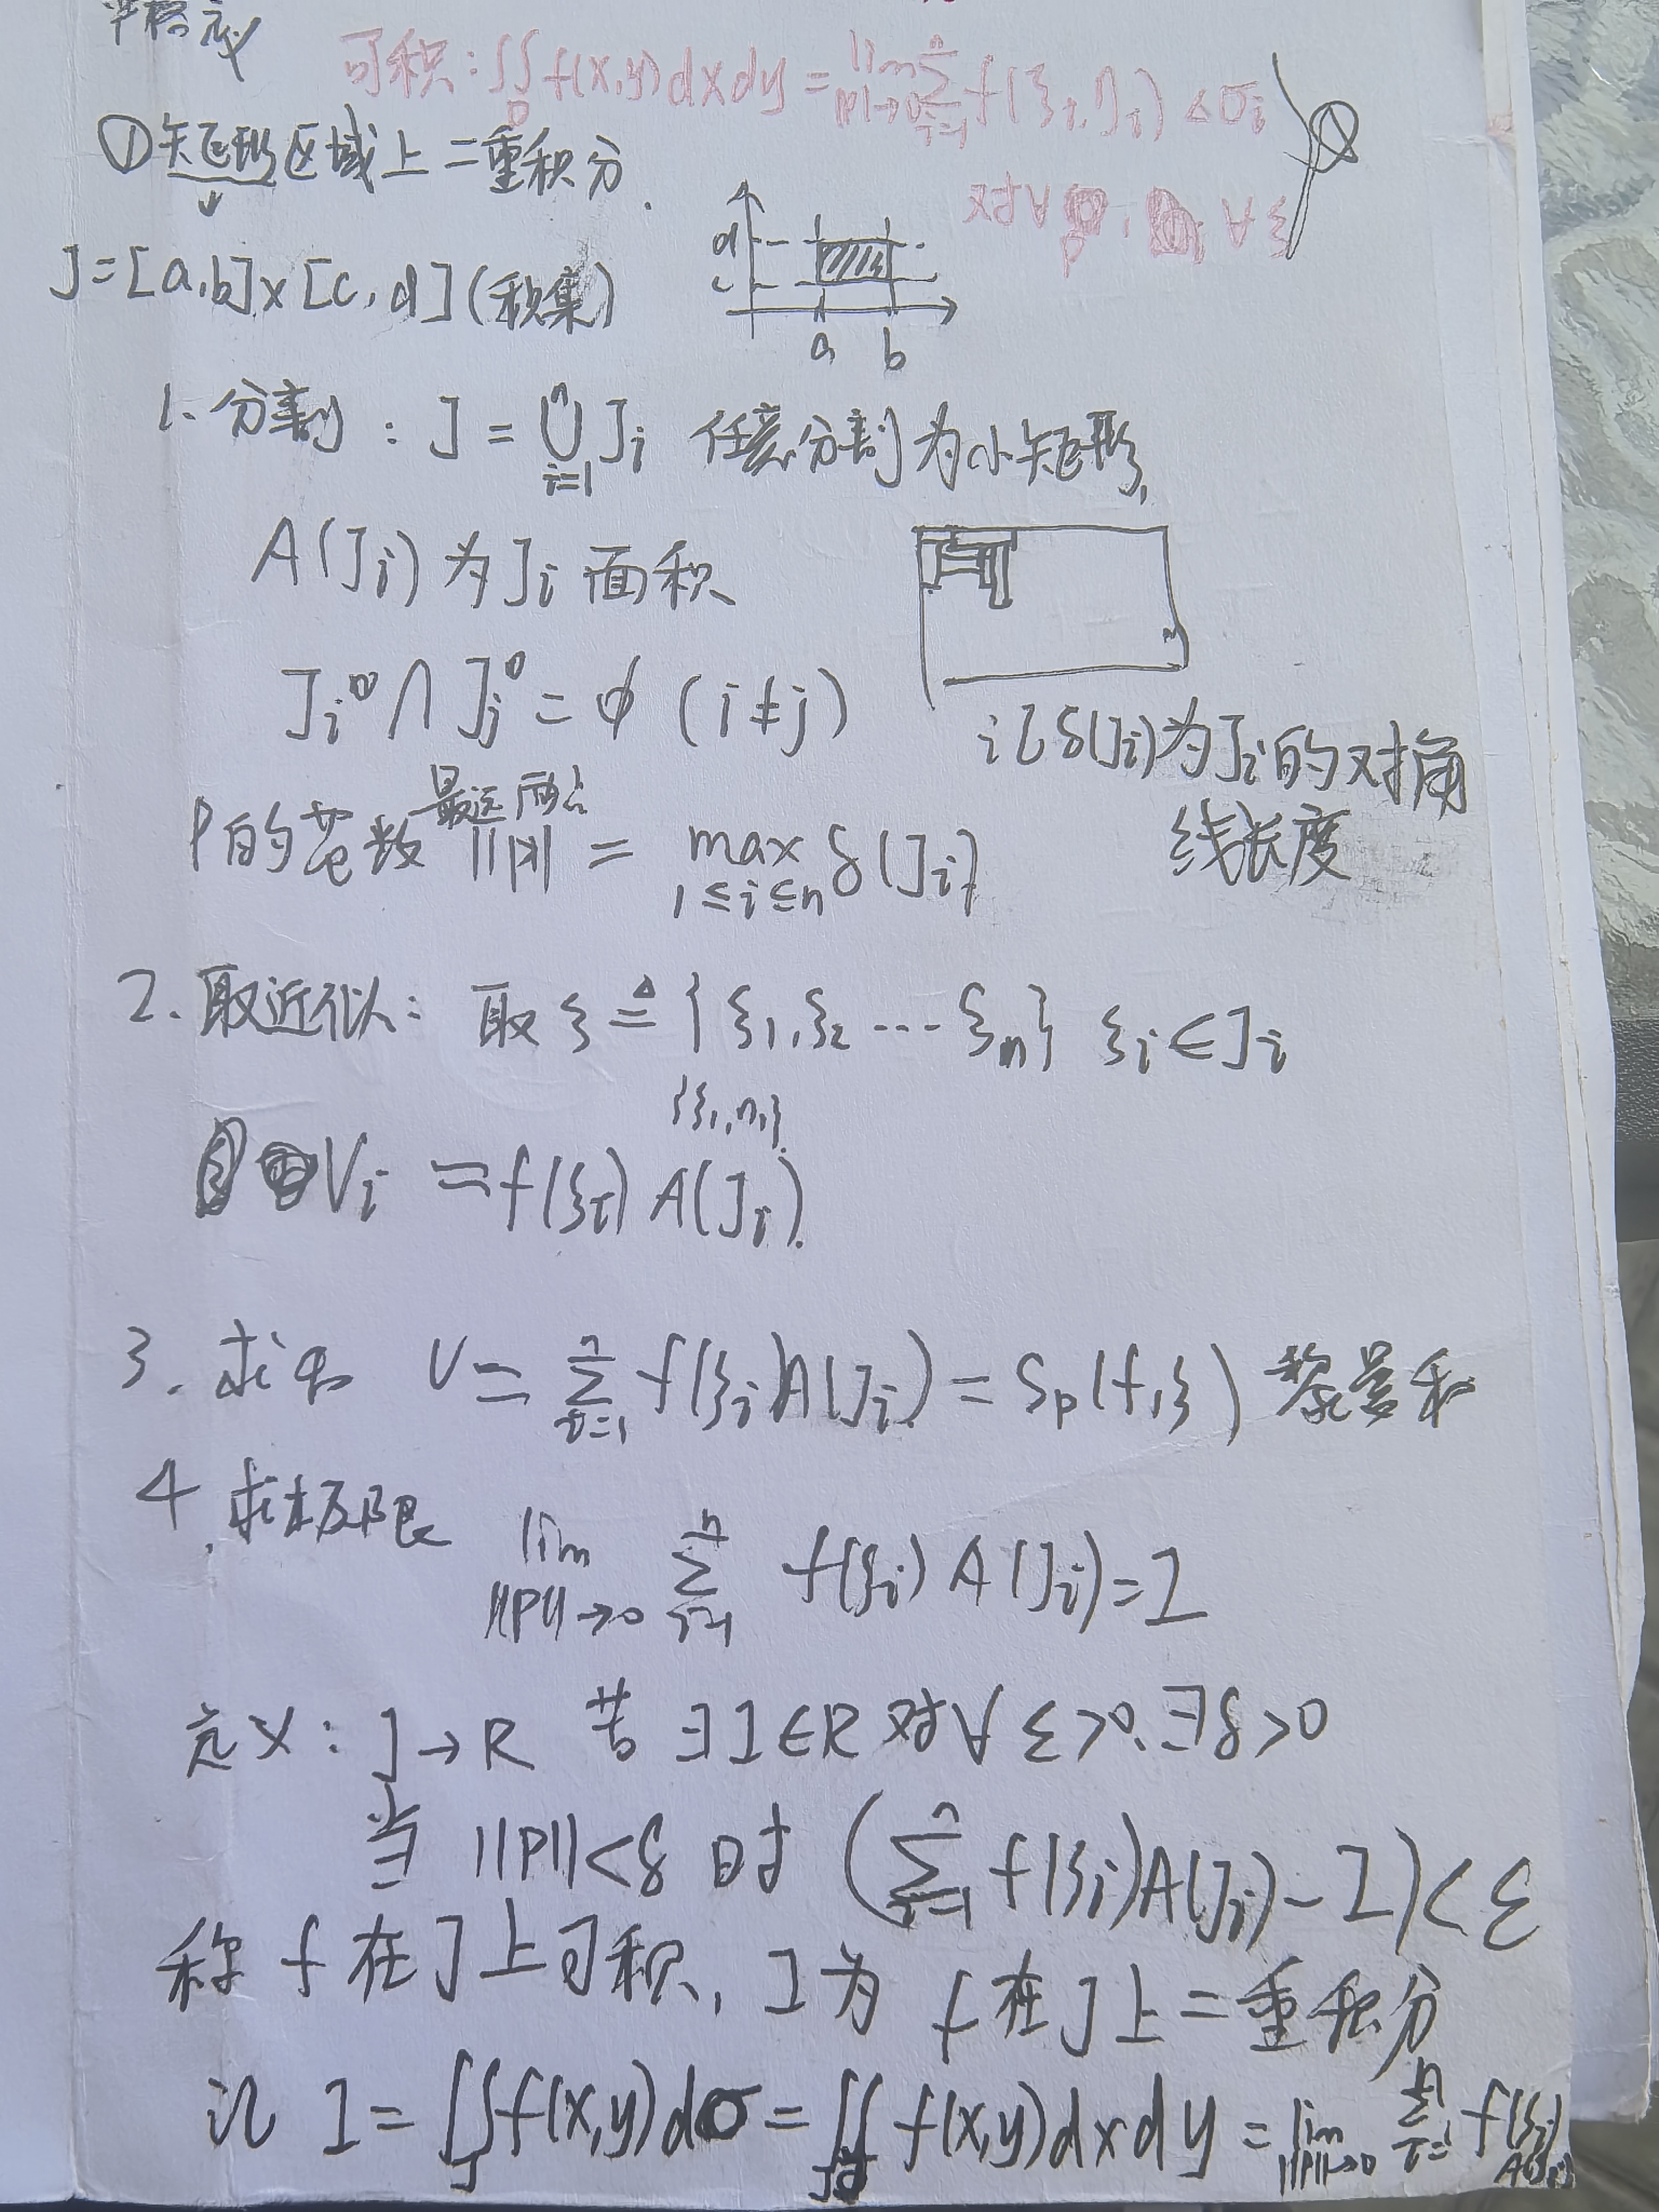 可积:∬_D f(x,y)dxdy=lim_{||P||→0}∑_{i=1}^n f(ξ_i,η_i)△σ_i
①矩形区域上二重积分.
对∀ P, ∀ξ
J=[a,b]×[c,d](积集)
d
c
a b
1.分割:J=⋃_{i=1}^n J_i 任意分割为小矩形,
A(J_i)为J_i面积
J_i^o∩J_j^o=φ(i≠j)
记δ(J_i)为J_i的对角
线长度
最远两点
P的范数||P||=max_{1≤i≤n}δ(J_i)
2.取近似:取ξ≜{ξ_1,ξ_2…ξ_n} ξ_i∈J_i
{ξ_1,η_1}
V_i=f(ξ_i)A(J_i).
3.求和 V=∑_{i=1}^n f(ξ_i)A(J_i)=S_p(f,ξ)黎曼和
4.求极限 lim_{||P||→0}∑_{i=1}^n f(ξ_i)A(J_i)=I
定义:J→R 若∃I∈R对∀ε>0.∃δ>0
当||P||<δ时(∑_{i=1}^n f(ξ_i)A(J_i)-I)<ε
称f在J上可积,I为f在J上二重积分
记I=∬_J f(x,y)dσ=∬_J f(x,y)dxdy=lim_{||P||→0}∑_{i=1}^n f(ξ_i)